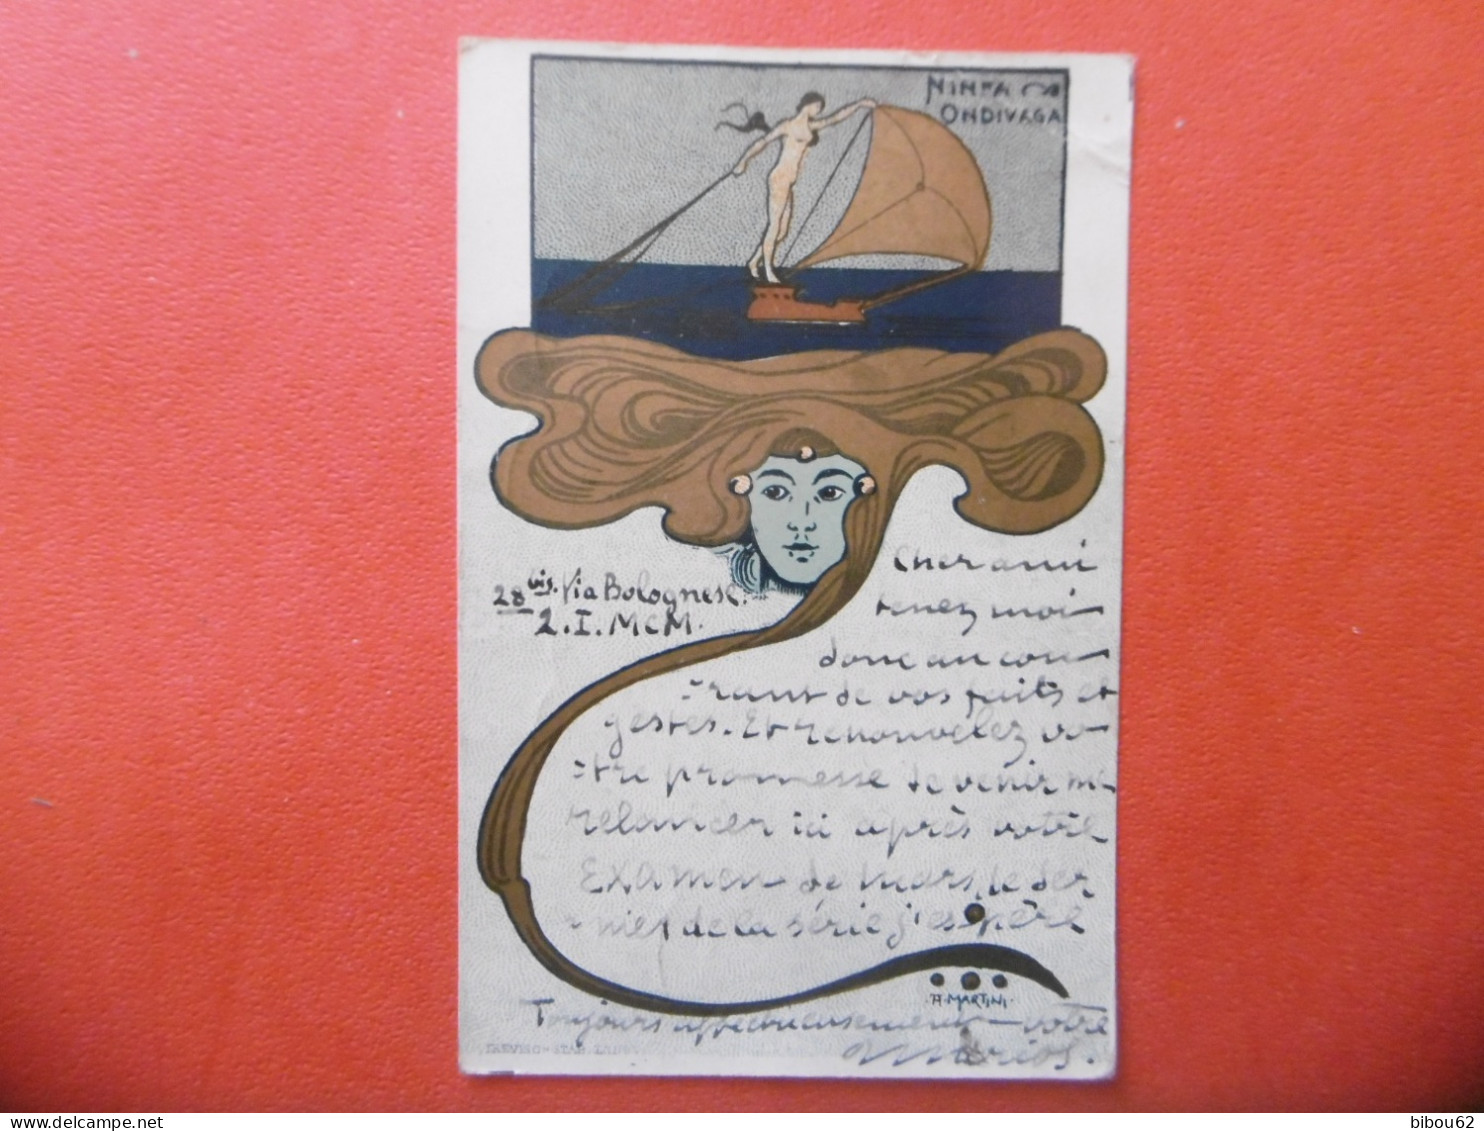 NINFA
ONDIVAGA
28 bis. Via Bolognese.
2.I.MCM.
Cher ami
tenez moi
donc au cou-
-rant de vos faits et
gestes. Et renouvelez vo-
-tre promesse de venir me
relancer ici après votre
Examen de mars, le der
-nier de la série j'espère
A·MARTINI·
Toujours affectueusement votre
TREVISO - STAB.
bibou62